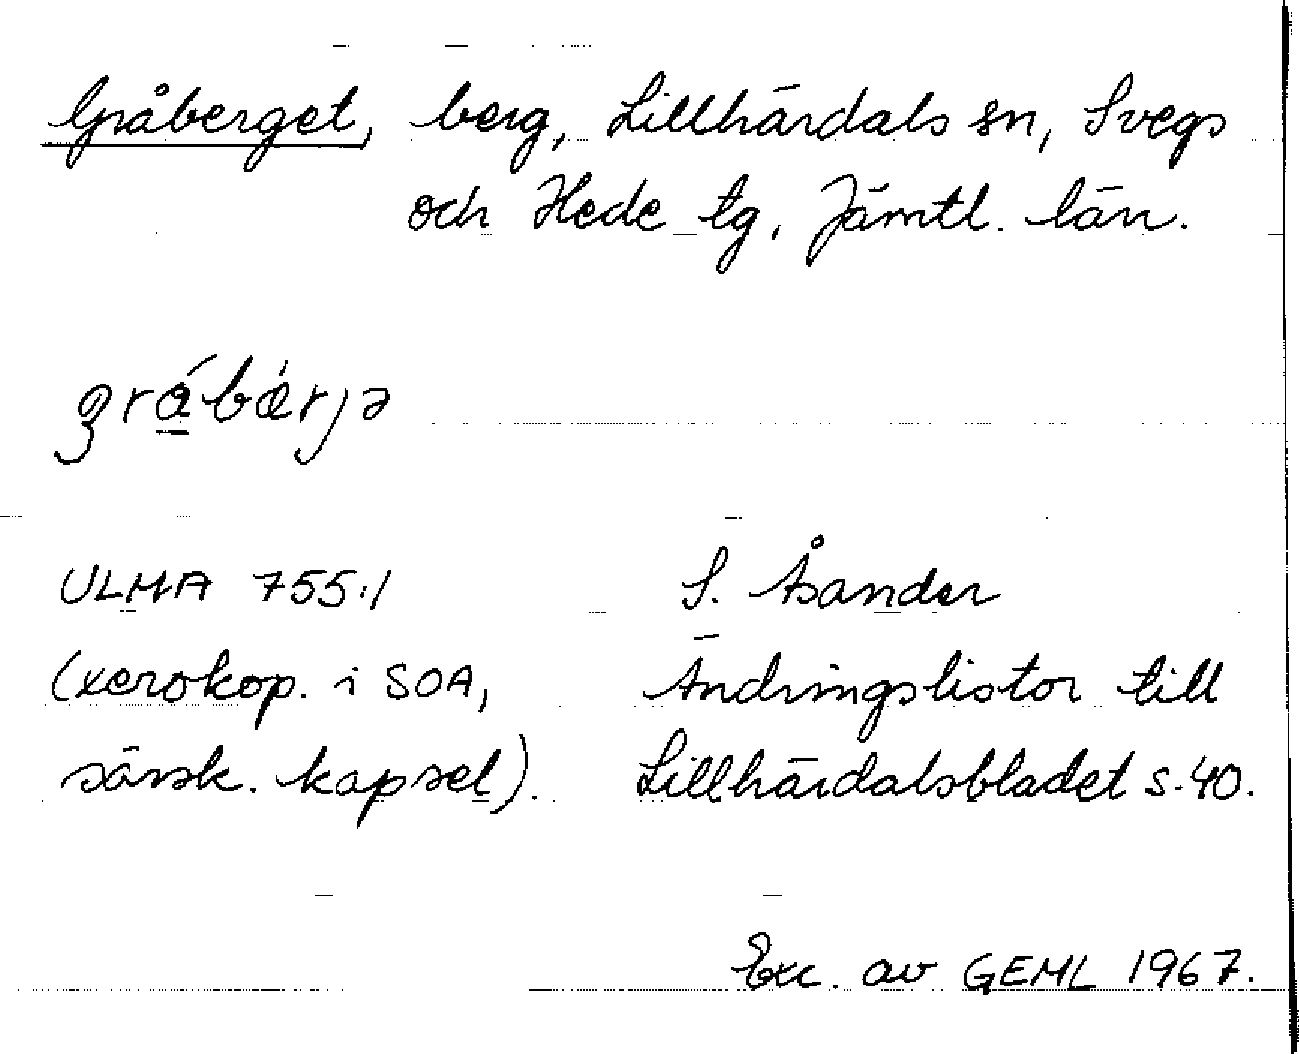 Gråberget, berg, Lillhärdals sn, Svegs
och Hede tg, Jämtl. län.
grá̲bǽrjə
ULMA 755:1
(xerokop. i SOA,
särsk. kapsel).
S. Åsander
Ändringslistor till
Lillhärdalsbladet s. 40.
Exc. av GEML 1967.